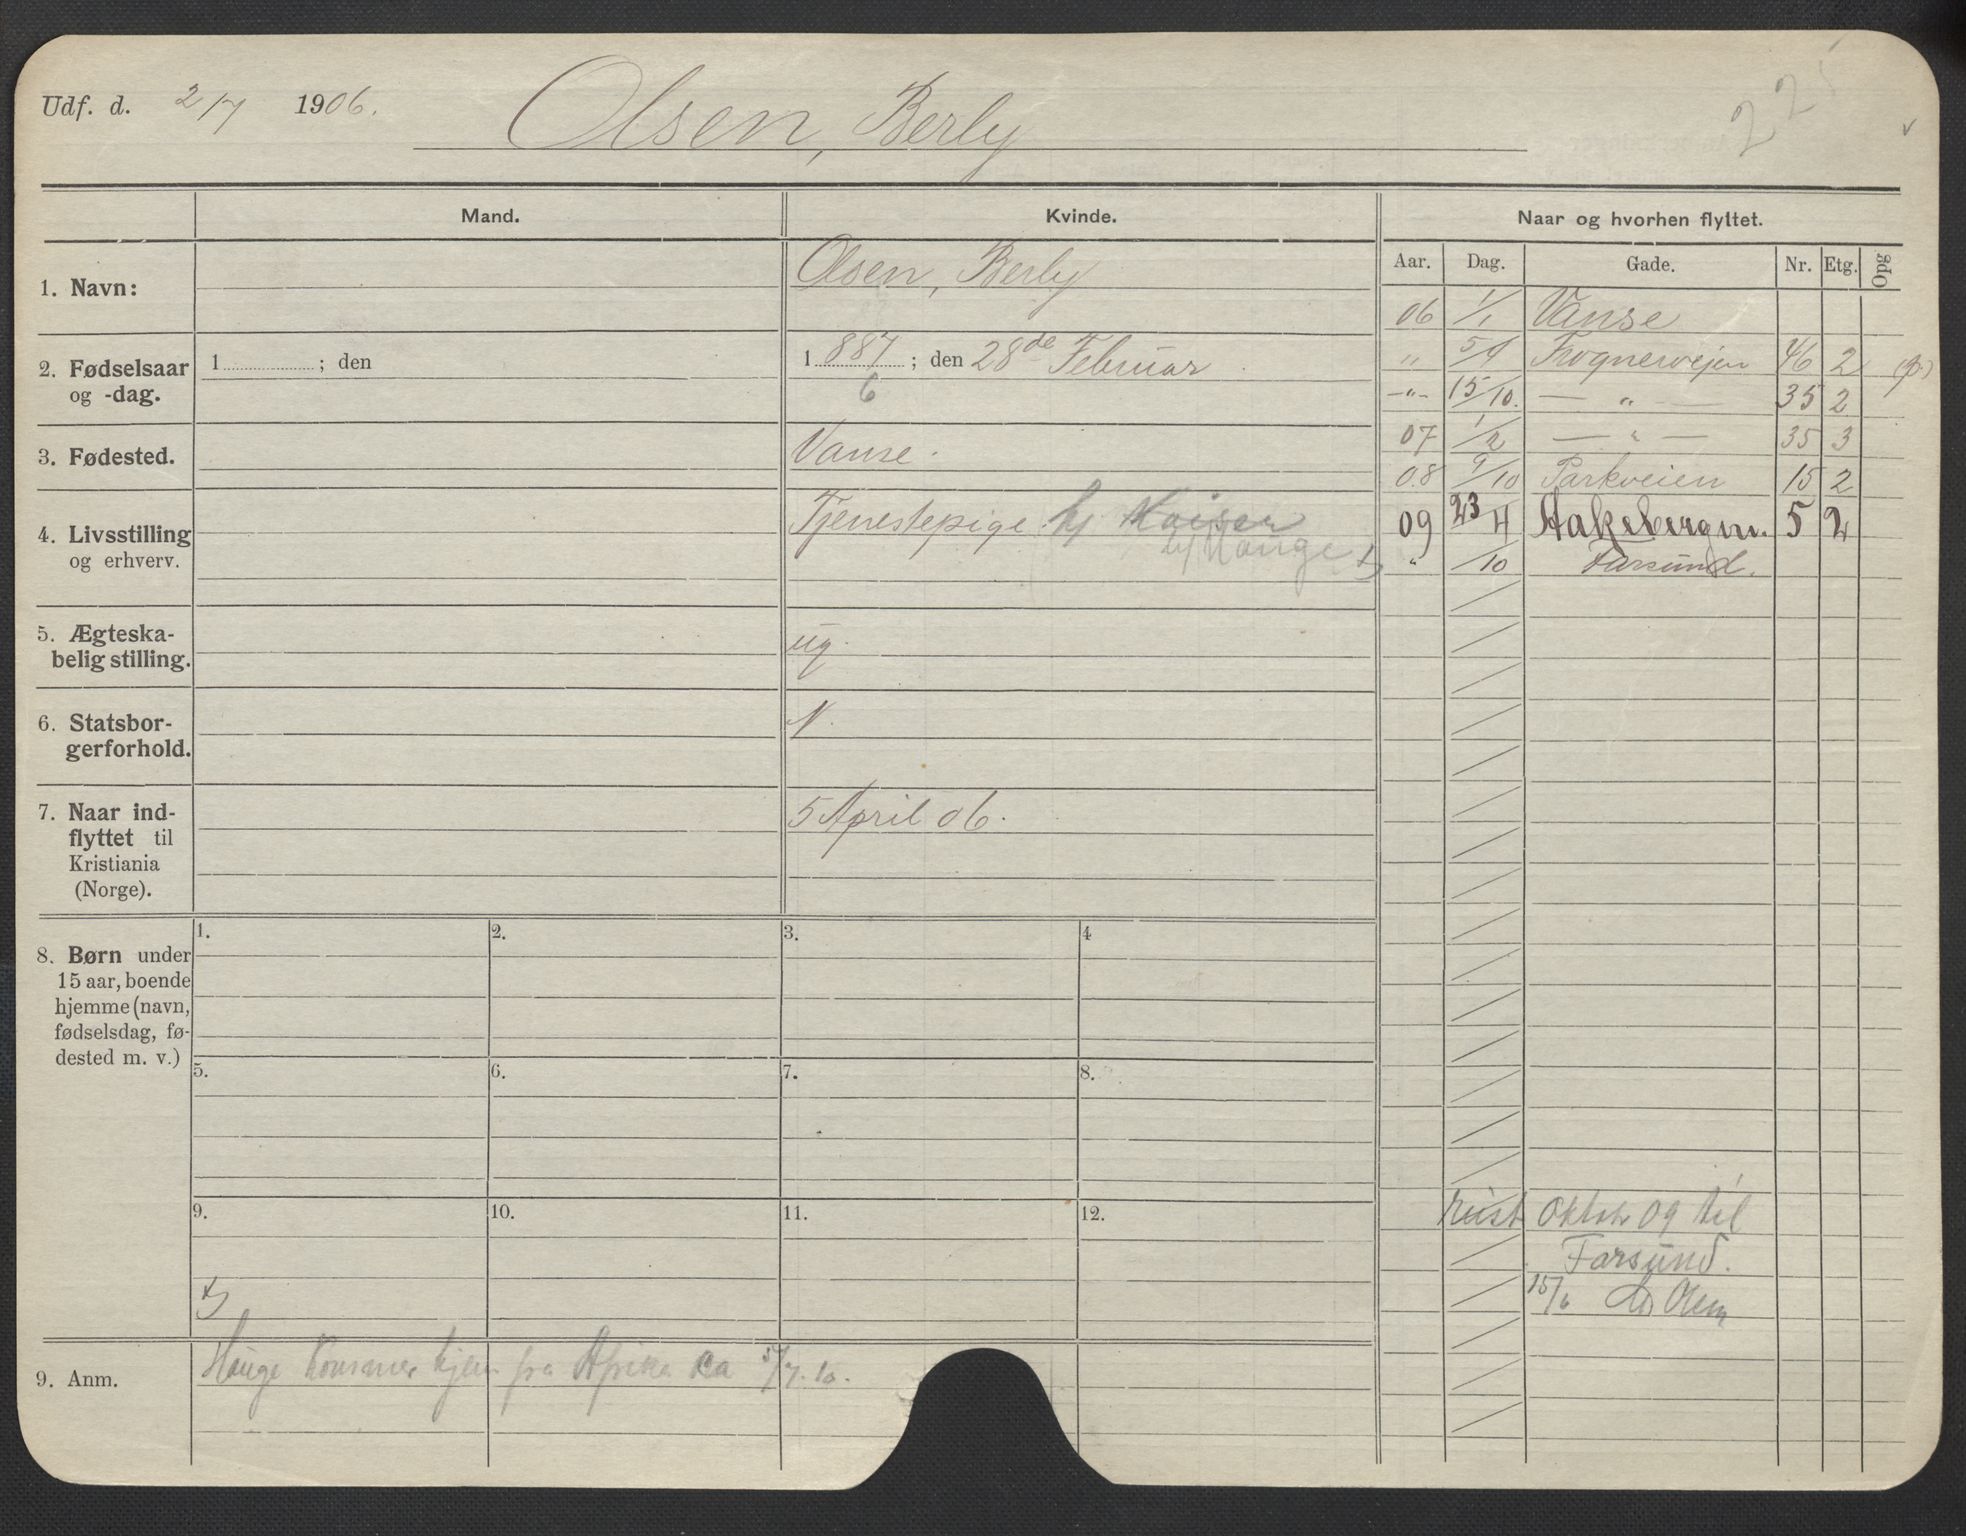 Udf. d. 2/7 1906.
Olsen, Berly
22
Mand.
Kvinde.
Naar og hvorhen flyttet.
Aar. Dag. Gade. Nr. Etg. Opg
1. Navn:
Olsen, Berly
2. Fødselsaar
og -dag.
1 ; den
1 887 ; den 28de Februar
6
3. Fødested.
Vanse.
4. Livsstilling
og erhverv.
Tjenestepige hj Kaiser
hj Hauge
5. Ægteska-
belig stilling.
ug.
6. Statsbor-
gerforhold.
N.
7. Naar ind-
flyttet til
Kristiania
(Norge).
5 April 06.
8. Børn under
15 aar, boende
hjemme (navn,
fødselsdag, fø-
dested m. v.)
1. 2. 3. 4
5. 6. 7. 8.
9. 10. 11. 12.
9. Anm.
Hauge kommer hjem fra Afrika ca 5/7.10.
06 1/1 Vanse
" 5/4 Frognerveien 46 2 (p.)
-"- 15/10. — " — 35 2
07 1/2 — " — 35 3
08 9/10 Parkveien 15 2
09 23/4 Aakebergvn. 5 2
" /10 Farsund.
reist Oktobr 09 til
Farsund.
15/6 Olsen